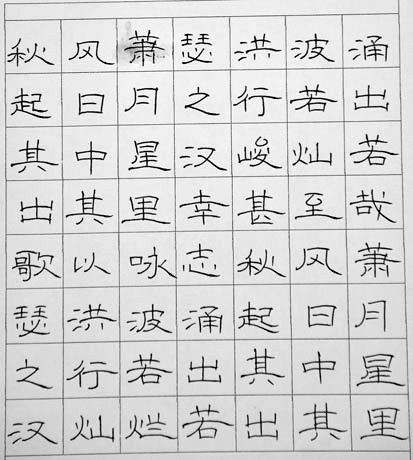 秋风萧瑟洪波涌
起日月之行若出
其中星汉峻灿若
出其里幸甚至哉
歌以咏志秋风萧
瑟洪波涌起日月
之行若出其中星
汉灿烂若出其里